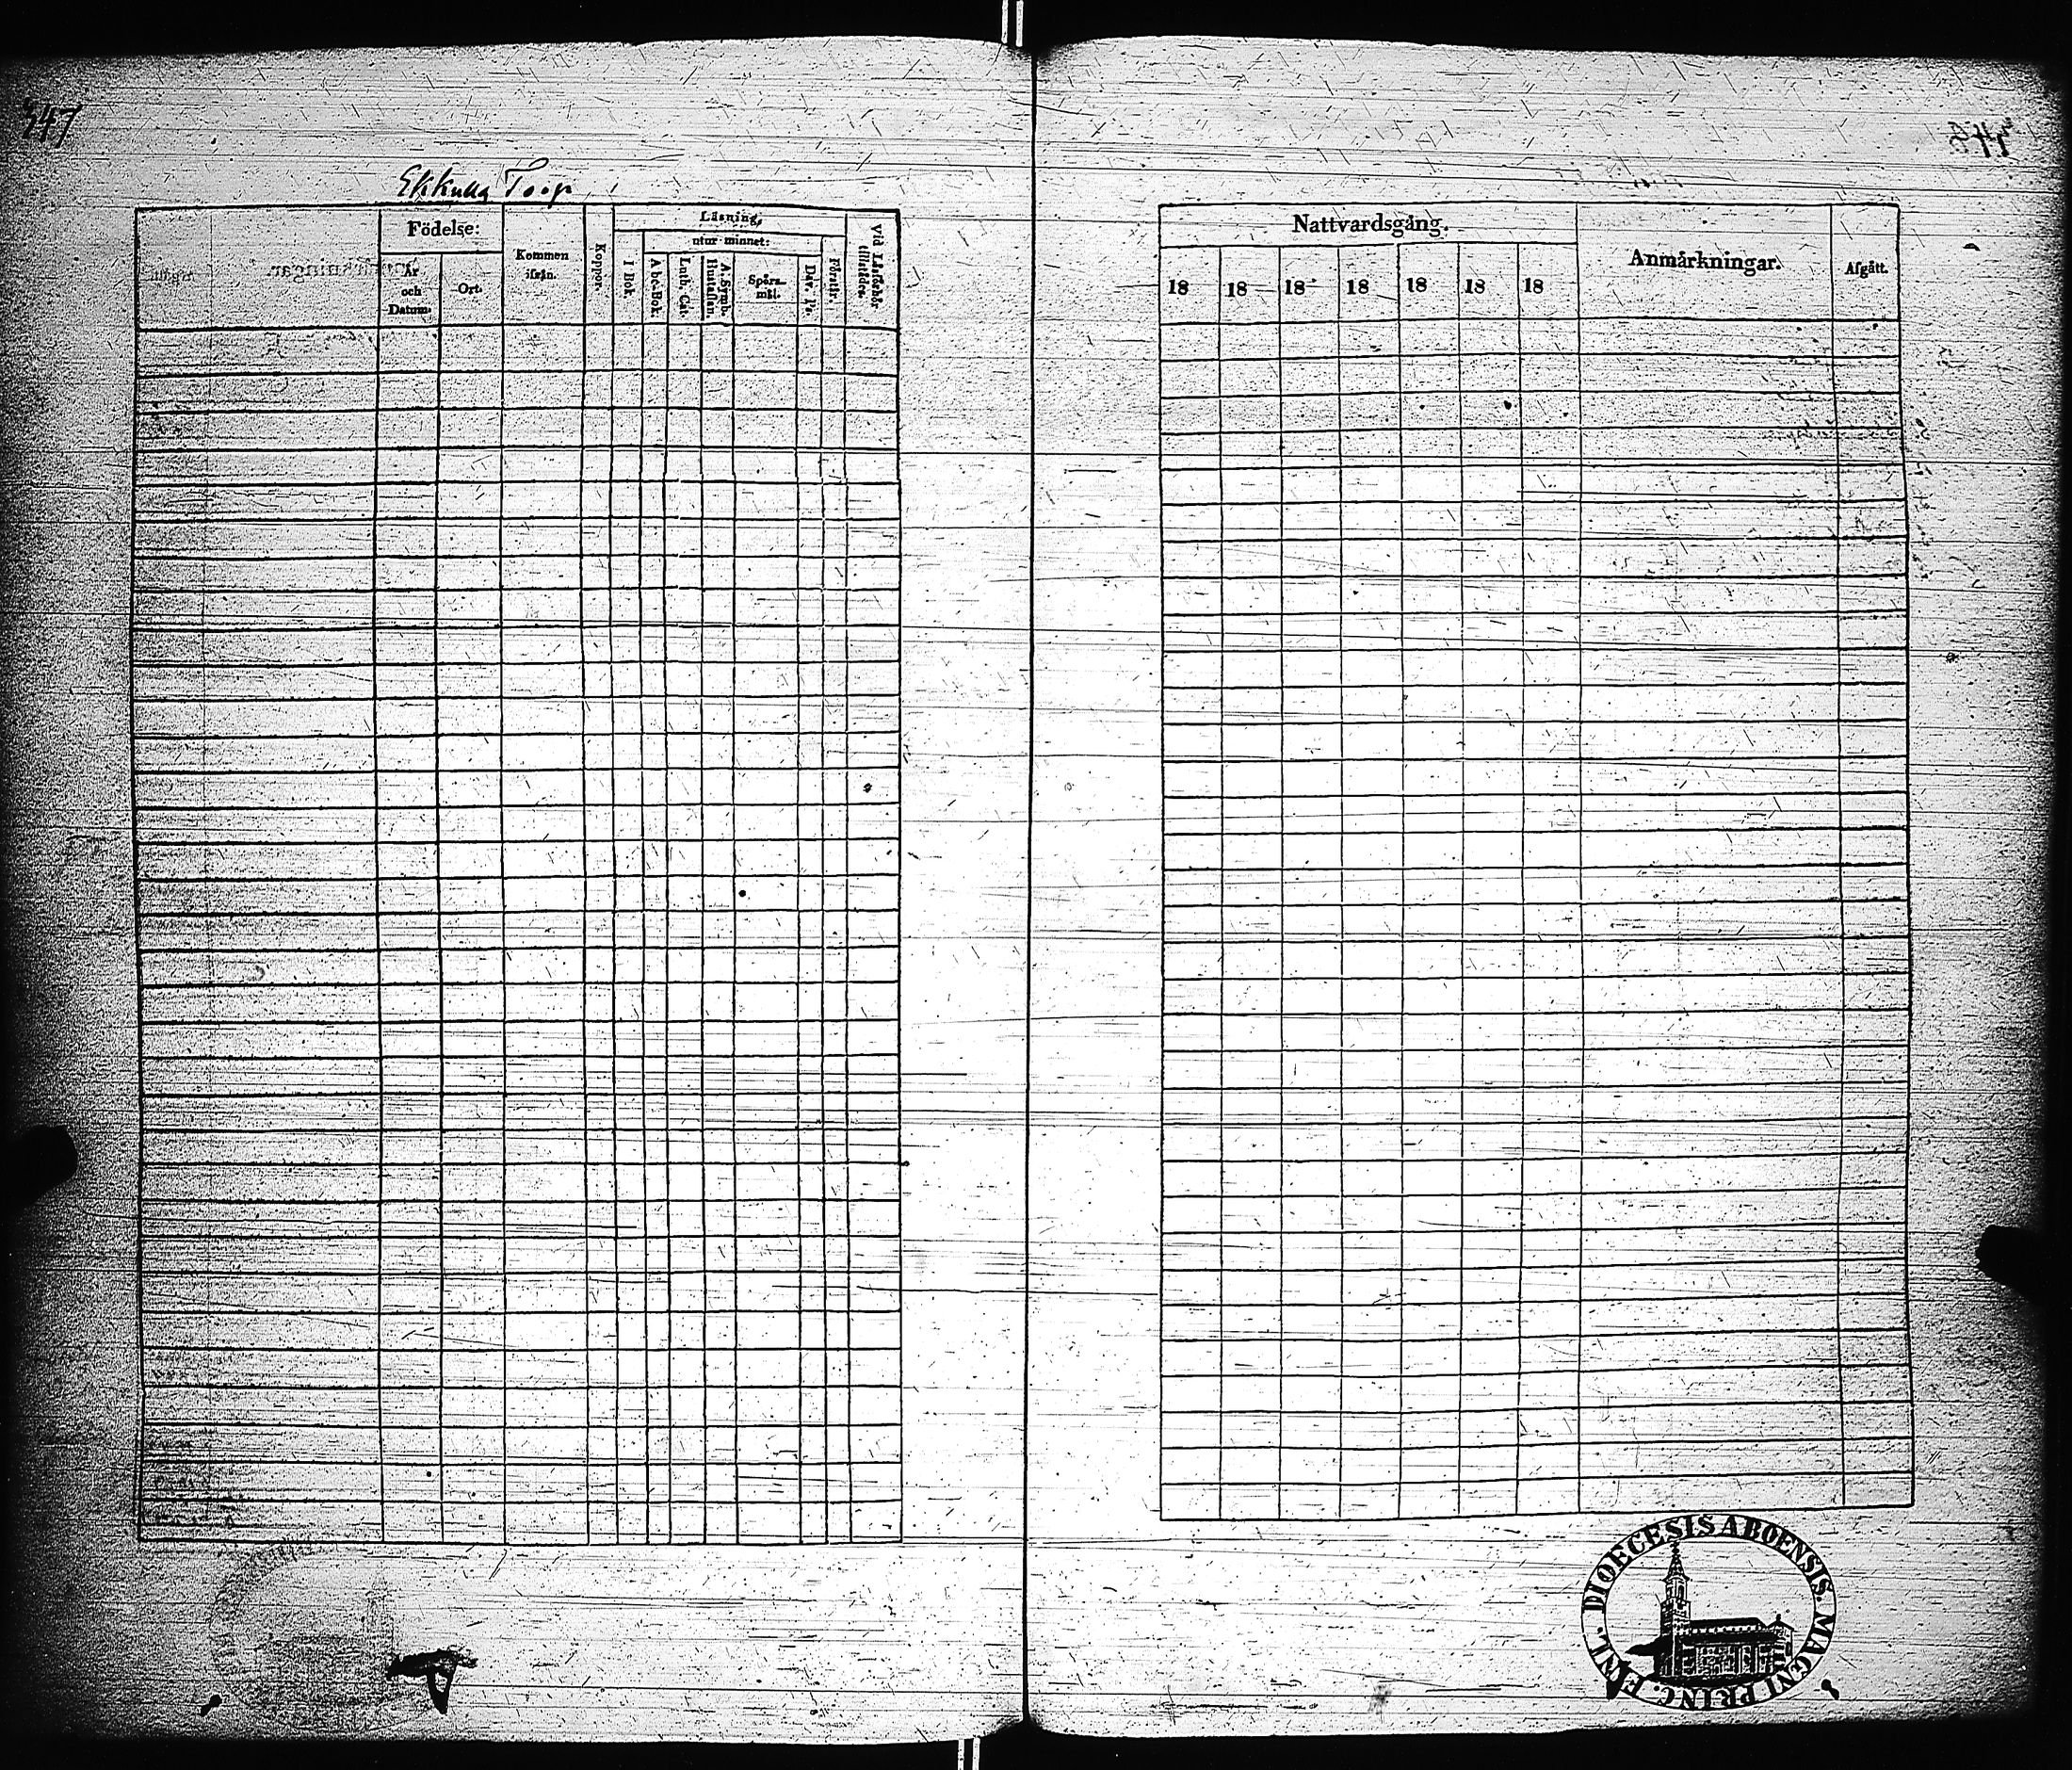 347
Ekkulla Torp
Födelse:
År och Datum.
Ort.
Kommen ifrån.
Koppor.
Läsning,
I Bok.
utur minnet:
A bc-Bok.
Luth. Cat.
A. Symb. Hustaflan.
Spörs-mål.
Dav. Ps.
Förstår.
Vid Läsförhör tillstädes.
Nattvardsgång.
18 18 18 18 18 18 18
Anmärkningar.
Afgått.
DIOECESIS ABOENSIS. MAGNI PRINC. FINL.